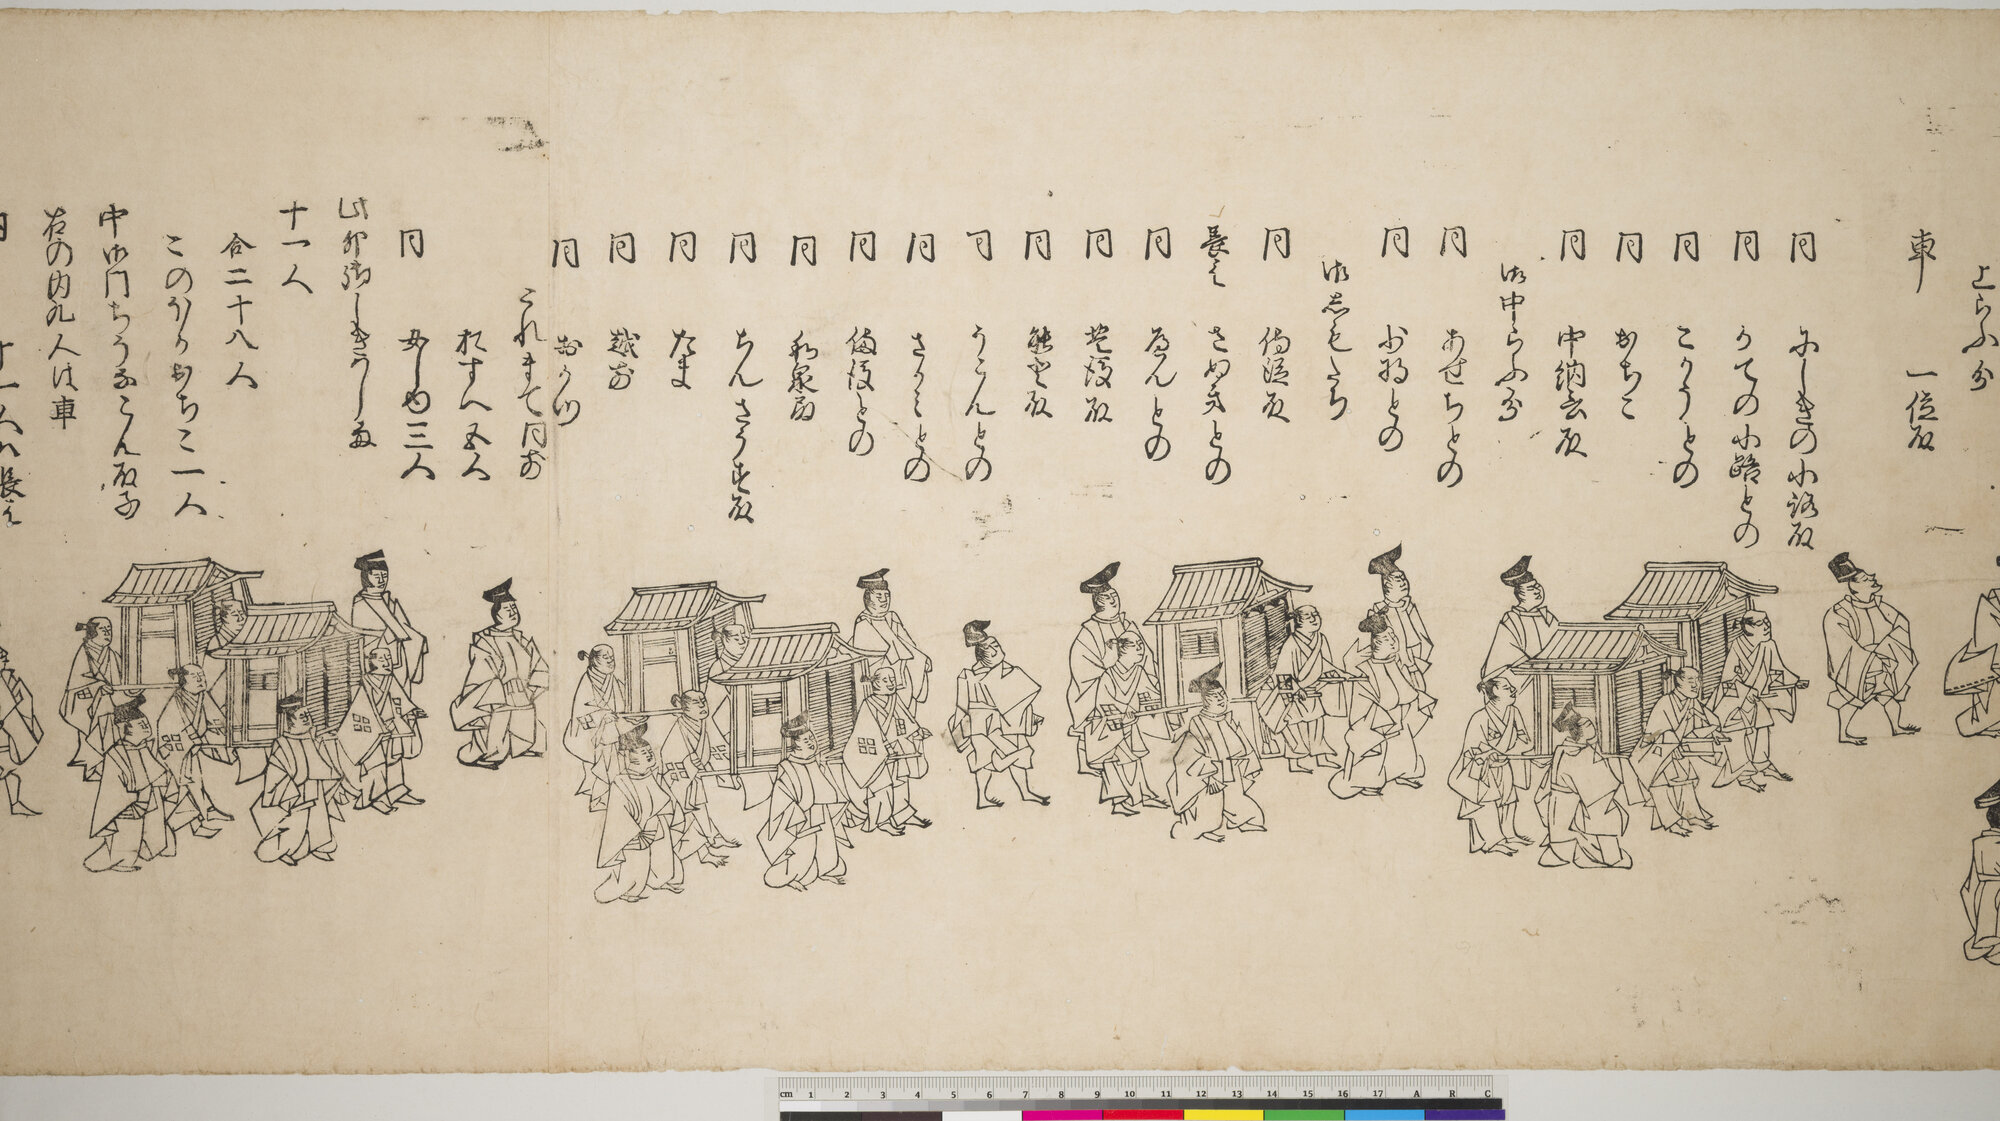 上らふ分
車 一位殿
同 にしきの小路殿
同 うての小路との
同 こかうとの
同 おちこ
同 中納言殿
御中らふ分
同 あせちとの
同 少将との
御志もたち
同 侍従殿
長え さぬきとの
同 ゐんとの
同 筑後殿
同 能登殿
同 うこんとの
同 さかミとの
同 備後との
同 和泉殿
同 ちんさうす殿
同 たま
同 越前
同 おかつ
これまて同前
おすへ五人
同 女しゆ三人
此外御しきろしゆ
十一人
合二十八人
このほかおちこ一人
中御門ちうなこん殿子
右の内九人は車
同 十一人ハ長え
cm 1 2 3 4 5 6 7 8 9 10 11 12 13 14 15 16 17 A R C